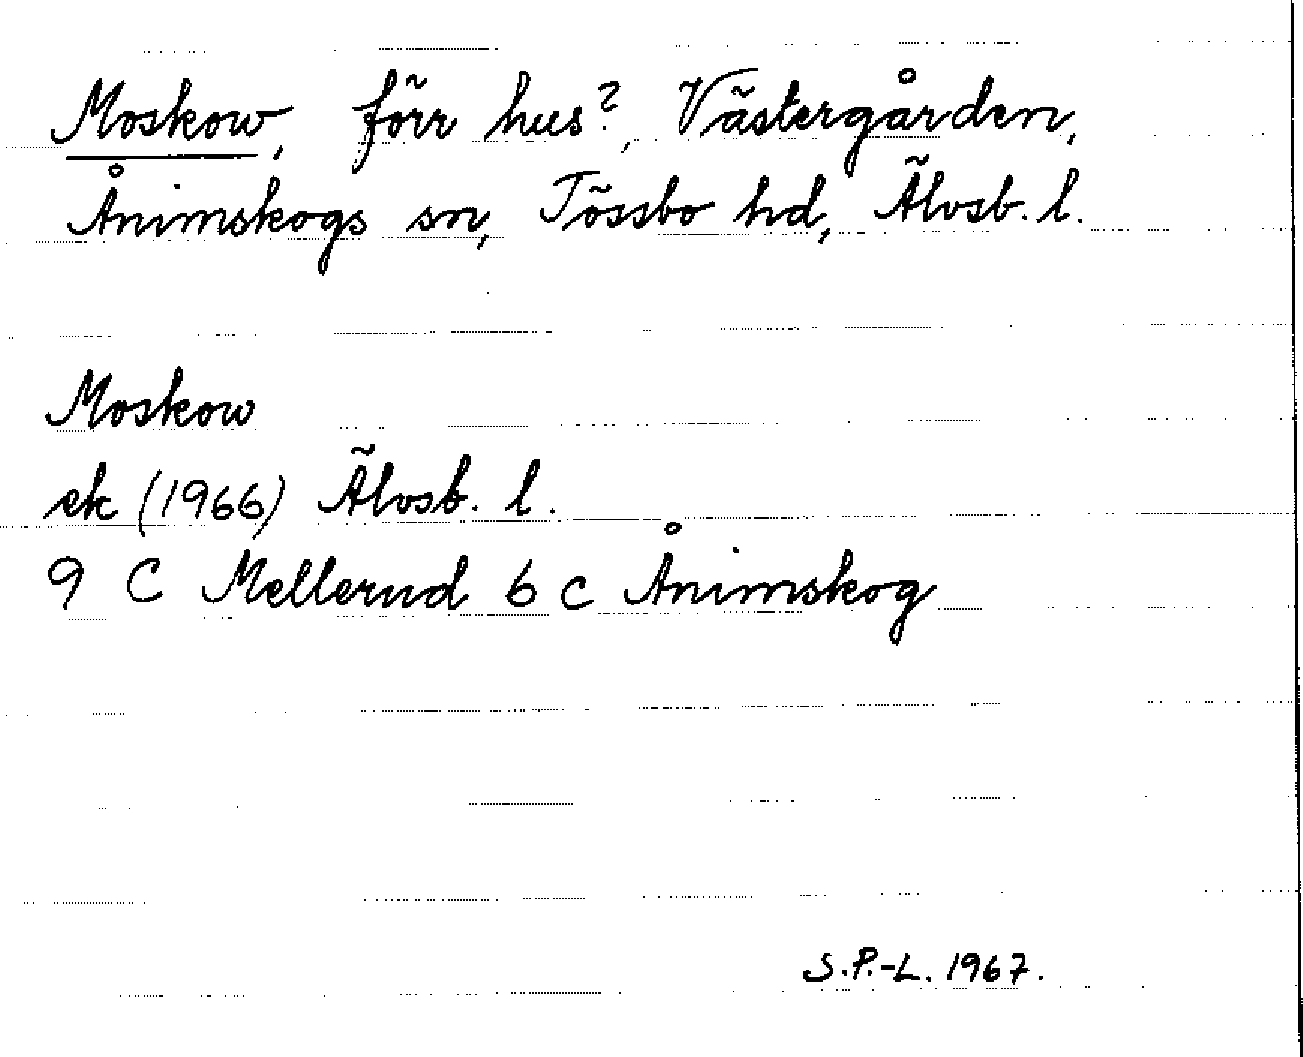 Moskow, förr hus?, Västergården,
Ånimskogs sn, Tössbo hd, Älvsb. l.
Moskow
ek (1966) Älvsb. l.
9 C Mellerud 6 c Ånimskog
S.P.-L. 1967.